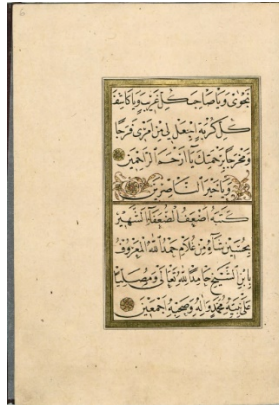 نَجْوٰى وَيَا صَاحِبَ كُلِّ غَرِيبٍ وَيَا كَاشِفَ
كُلِّ كُرْبَةٍ اِجْعَلْ لِى مِنْ اَمْرِى فَرَجًا
وَمَخْرَجًا بِرَحْمَتِكَ يَا اَرْحَمَ الرَّاحِمِينَ
وَيَا خَيْرَ النَّاصِرِينَ
كَتَبَهُ اَضْعَفُ الضُّعَفَاءِ الشَّهِيرُ
غُلَامِ حَمْدِ اللّٰهِ الْمَعْرُوفِ
بِابْنِ الشَّيْخِ حَامِدًا لِلّٰهِ تَعَالٰى وَمُصَلِّيًا
عَلٰى نَبِيِّهِ مُحَمَّدٍ وَاٰلِهِ وَصَحْبِهِ اَجْمَعِينَ